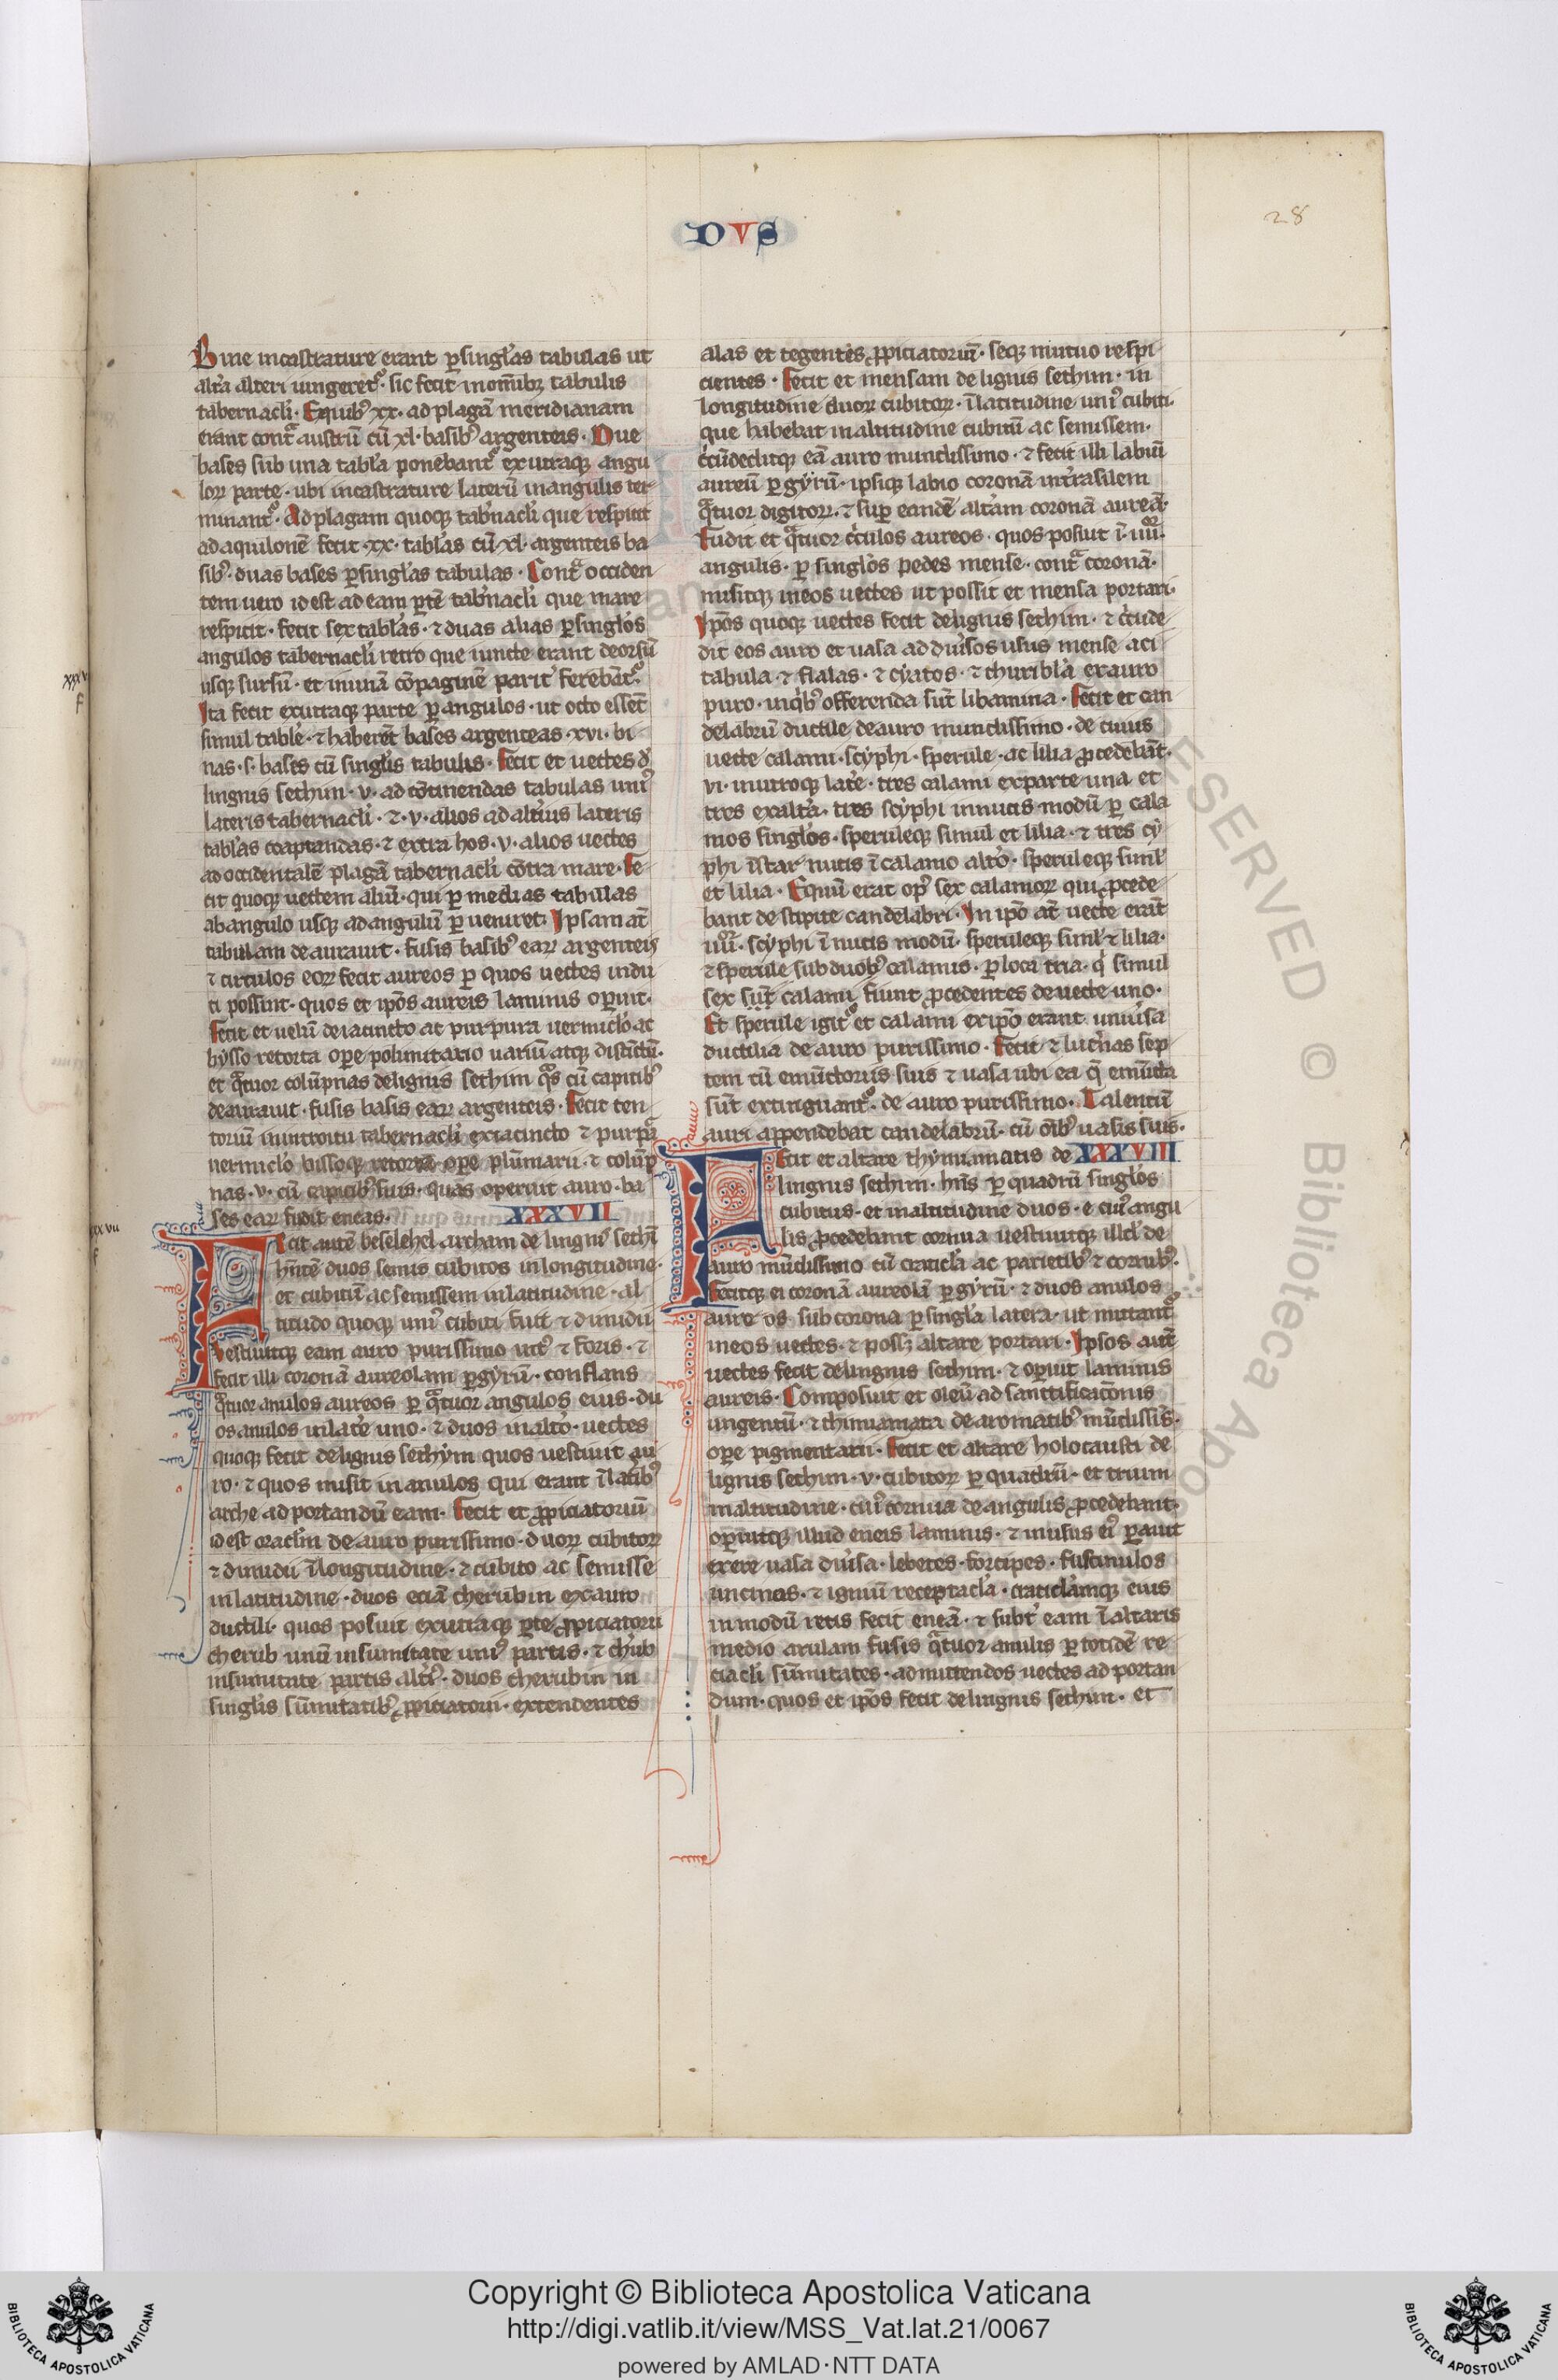 DVS
28
Bine incastrature erant ꝑ singl'as tabulas ut
alt'a alteri iungeret᷑· sic fecit in om̅ibꝫ tabulis
tabernacl'i· Equibꝰ xx· ad plagā meridianam
erant cont̾ austrū cū xl· basibꝰ argenteis· Due
bases sub una tabl'a ponebant᷑ ex utraqꝫ angu
loꝝ parte· ubi incastrature laterū in angulis ter
minant᷑· Ad plagam quoqꝫ tab'nacl'i que respicit
ad aquilonē fecit ·xx· tabl'as cū xl· argenteis ba
sibꝰ· duas bases ꝑ singl'as tabulas· Cont̾ occiden
tem uero id est ad eam ꝑtē tab'nacl'i que mare
respicit· fecit sex tabl'as· ⁊ duas alias ꝑ singl'os
angulos tabernacl'i retro que iuncte erant deorsū
usqꝫ sursū· et in unā cōpaginē parit' ferebāt᷑·
Ita fecit ex utraqꝫ parte ꝑ angulos· ut octo essēt
simul tabl'e· ⁊ haberēt bases argenteas ·xvi· bi
nas ·s· bases cū singl'is tabulis· Fecit et uectes d'
lingnis sethim ·v· ad cōtinendas tabulas uniꝰ
lateris tabernacl'i· ⁊ ·v· alios ad alt'ius lateris
tabl'as coaptandas· ⁊ extra hos ·v· alios uectes
ad occidentalē plagā tabernacl'i cōtra mare· Fe
cit quoqꝫ uectem aliū· qui ꝑ medias tabulas
ab angulo usqꝫ ad angulū ꝑueniret· Ipsam at̄
tabulam deaurauit· fusis basibꝰ eaꝝ argenteis
⁊ circulos eoꝝ fecit aureos ꝑ quos uectes indu
ci possint· quos et ip̄os aureis laminis oꝑuit·
Fecit et uelū de iacincto ac purpura uermicl'o ac
bysso retorta oꝑe polimitario uariū atqꝫ distīctū·
et q̾tuor colūpnas de lignis sethim q̾s cū capitibꝰ
deaurauit· fusis basis eaꝝ argenteis· Fecit ten
torium in introitu tabernacl'i ex iacincto ⁊ purp̾
uermicl'o bissoqꝫ retorta oꝑe plūmarii· ⁊ colūp
nas ·v· cū capitibꝰ suis· quas operuit auro· ba
ses eaꝝ fudit eneas·
XXXVII
Fecit autē beselehel archam de lingnis sethī
hn̄tē duos semis cubitos in longitudine·
et cubitū ac semissem in latitudine· al
titudo quoqꝫ uniꝰ cubiti fuit ⁊ dimidii
Vestiuitqꝫ eam auro purissimo intꝰ ⁊ foris· ⁊
fecit illi coronā aureolam ꝑ gyrū· conflans
q̾tuor anulos aureos ꝑ q̾tuor angulos eius· du
os anulos in lat'e uno· ⁊ duos in alt'o· uectes
quoqꝫ fecit de lignis sethym quos uestiuit au
ro· ⁊ quos misit in anulos qui erant ī lat'ibꝰ
arche ad portandū eam· Fecit et ꝓpiciatoriū
id est oracl'm de auro purissimo· duoꝝ cubitoꝝ
⁊ dimidii ī longitudine· ⁊ cubito ac semisse
in latitudine· duos eciā cherubin ex auro
ductili· quos posuit ex utraqꝫ ꝑte ꝓpiciatorii
cherub unū in sumitate uniꝰ partis· ⁊ ch'ub
in sumitate partis alt'iꝰ· duos cherubin in
singl'is sūmitatibꝰ ꝓpiciatorii· extendentes
alas et tegentes ꝓpiciatoriū· seqꝫ mutuo respi
cientes· Fecit et mensam de lignis sethim· in
longitudine duoꝝ cubitoꝝ· ī latitudine uniꝰ cubiti·
que habebat in altitudine cubitū ac semissem·
c̓cūdeditqꝫ eā auro mundissimo· ⁊ fecit illi labiū
aureū ꝑ gyrū· ipsiqꝫ labio coronā int'rasilem
q̾tuor digitoꝝ· ⁊ suꝑ eandē alt'am coronā aureā·
Fudit et q̾tuor c̓culos aureos· quos posuit ī iiiiᵒʳ
angulis· ꝑ singl'os pedes mense· cont̾ coronā·
misitqꝫ in eos uectes ut possit et mensa portari·
Ip̄os quoqꝫ uectes fecit de lignis sethim· ⁊ c̓cūde
dit eos auro et uasa ad diu'sos usus mense aci
tabula ⁊ fialas· ⁊ cyatos· ⁊ thuribl'a ex auro
puro· in q'bꝰ offerenda sūt libamina· Fecit et can
delabrū ductile de auro mundissimo· de cuius
uecte calami· scyphi· sperule· ac lilia ꝓcedebāt·
vi· in utroqꝫ lat'e· tres calami ex parte una et
tres ex alt'a· tres scyphi in nucis modū ꝑ cala
mos singl'os· speruleqꝫ simul et lilia· ⁊ tres cy
phi īstar nucis ī calamo alt'o· speruleqꝫ simul'
et lilia· Equū erat opꝰ sex calamoꝝ qui ꝓcede
bant de stipite candelabri· In ip̄o at̄ uecte erāt
iiiiᵒʳ· scyphi ī nucis modū· speruleqꝫ simul' ⁊ lilia·
⁊ sperule sub duobꝰ calamis· ꝑ loca tria· q' simul
sex sūt calami fiunt ꝓcedentes de uecte uno·
Et sperule igit᷑ et calami ex ip̄o erant uniu'sa
ductilia de auro purissimo· Fecit ⁊ luc'nas sep
tem cū emūctoriis suis ⁊ uasa ubi ea q̄ emūcta
sūt extinguant᷑· de auro purissimo· Talentū
auri appendebat candelabrū· cū oībꝰ uasis suis·
Fecit et altare thymiamatis de XXXVIII
lingnis sethim· hn̄s ꝑ quadrū singl'os
cubitus· et in altitudine duos· e cuiꝰ angu
lis ꝓcedebant cornua uestiuitqꝫ illud de
auro mūdissimo cū craticl'a ac parietibꝰ ⁊ cornibꝰ·
Fecitqꝫ ei coronā aureolā ꝑ gyrū· ⁊ duos anulos
aureos sub corona ꝑ singl'a latera· ut mutant᷑
in eos uectes· ⁊ possꝫ altare portari· Ipsos aut̄
uectes fecit de lingnis sethim· ⁊ oꝑuit laminis
aureis· Composuit et oleū ad sanctificac̄onis
ungentū· ⁊ thimiamata de aromatibꝰ mūdissīs·
oꝑe pigmentarii· Fecit et altare holocausti de
lignis sethim ·v· cubitoꝝ ꝑ quadrū· et trium
in altitudine· cuiꝰ cornua de angulis ꝓcedebant·
oꝑuitqꝫ illud eneis laminis· ⁊ in usus eiꝰ ꝑauit
ex ere uasa diu'sa· lebetes· forcipes· fuscinulos
uncinos· ⁊ igniū receptacl'a· craticl'amqꝫ eius
in modū retis fecit eneā· ⁊ subt' eam ī altaris
medio arulam fusis q̾tuor anulis ꝑ totidē re
ciacl'i sūmitates· ad mittendos uectes ad portan
dum· quos et ip̄os fecit de lingnis sethim· et
Copyright © Biblioteca Apostolica Vaticana
http://digi.vatlib.it/view/MSS_Vat.lat.21/0067
powered by AMLAD·NTT DATA
BIBLIOTECA APOSTOLICA VATICANA
BIBLIOTECA APOSTOLICA VATICANA